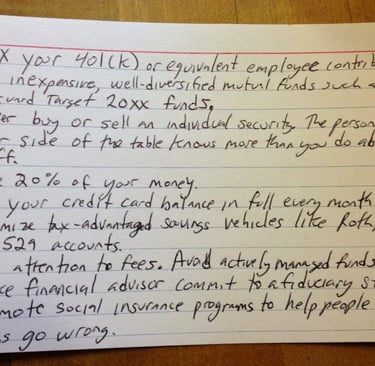 X your 401(k) or equivalent employee contrib
inexpensive, well-diversified mutual funds such
Target 20xx funds.
buy or sell an individual security. The person
side of the table knows more than you do ab
20% of your money.
your credit card balance in full every month
tax-advantaged savings vehicles like Roth,
529 accounts.
attention to fees. Avoid actively managed funds
financial advisor commit to a fiduciary st
social insurance programs to help people
go wrong.